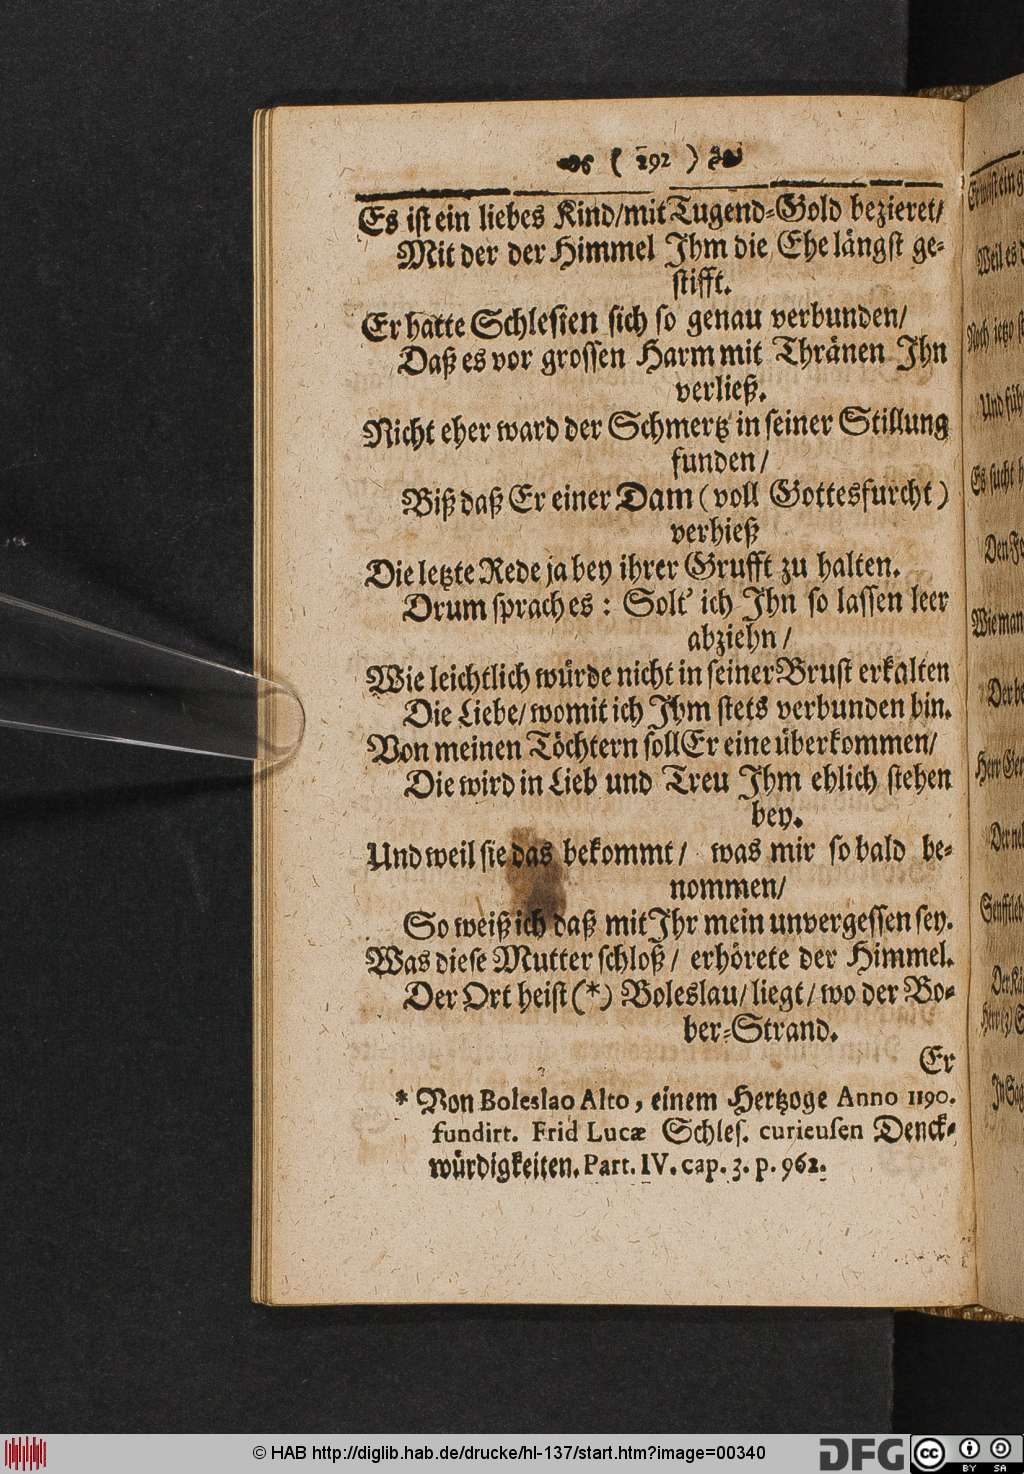 ( 192 )
Es ist ein liebes Kind/mit Tugend-Gold bezieret/
Mit der der Himmel Ihm die Ehe längst ge-
stifft.
Er hatte Schlesien sich so genau verbunden/
Daß es vor grossen Harm mit Thränen Ihn
verließ.
Nicht eher ward der Schmertz in seiner Stillung
funden/
Biß daß Er einer Dam (voll Gottesfurcht)
verhieß
Die letzte Rede ja bey ihrer Grufft zu halten.
Drum sprach es: Solt' ich Ihn so lassen leer
abziehn/
Wie leichtlich würde nicht in seiner Brust erkalten
Die Liebe/womit ich Ihm stets verbunden bin.
Von meinen Töchtern soll Er eine überkommen/
Die wird in Lieb und Treu Ihm ehlich stehen
bey.
Und weil sie das bekommt/ was mir so bald be-
nommen/
So weiß ich daß mit Ihr mein unvergessen sey.
Was diese Mutter schloß/ erhörete der Himmel.
Der Ort heist (*) Boleslau/liegt/wo der Bo-
ber-Strand.
Er
* Von Boleslao Alto, einem Hertzoge Anno 1190.
fundirt. Frid Lucæ Schles. curieusen Denck-
würdigkeiten. Part. IV. cap. 3. p. 962.
Weil es
Noch jetzo
Und füh
Es sucht
Wie man
© HAB http://diglib.hab.de/drucke/hl-137/start.htm?image=00340
DFG
cc BY SA